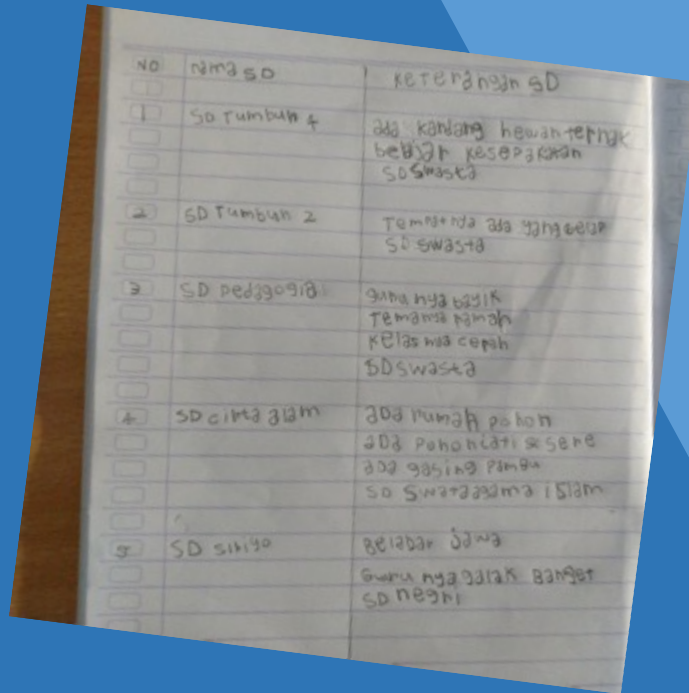 NO nama SD keterangan SD
1 SD Tumbuh 4 ada kandang hewan ternak
belajar kesepakatan
SD Swasta
2 SD Tumbuh 2 Tempatnya ada yang
SD swasta
3 SD pedagogia gurunya bayik
Temanya ramah
kelasnya cerah
SD swasta
4 SD cirta alam ada rumah pohon
ada pohon jati &
ada gasing
SD islam
5 SD Belajar Jawa
Guru nya galak Banget
SD negri